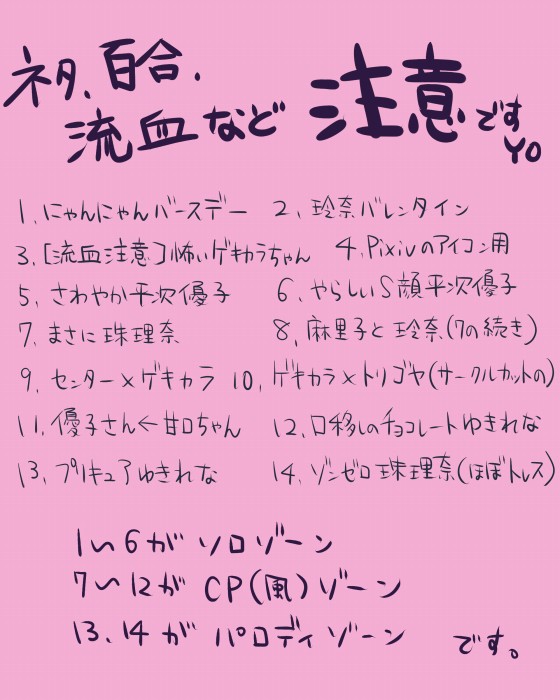 ネタ、百合、
流血など 注意ですYO
1、にゃんにゃんバースデー 2、玲奈バレンタイン
3、[流血注意]怖いゲキカラちゃん 4、Pixivのアイコン用
5、さわやか平次優子 6、やらしいS顔平次優子
7、まさに珠理奈 8、麻里子と玲奈(7の続き)
9、センター×ゲキカラ 10、ゲキカラ×トリゴヤ(サークルカットの)
11、優子さん←甘口ちゃん 12、口移しのチョコレートゆきれな
13、プリキュアゆきれな 14、ゾンゼロ珠理奈(ほぼトレス)
1〜6がソロゾーン
7〜12がCP(風)ゾーン
13、14がパロディゾーン です。